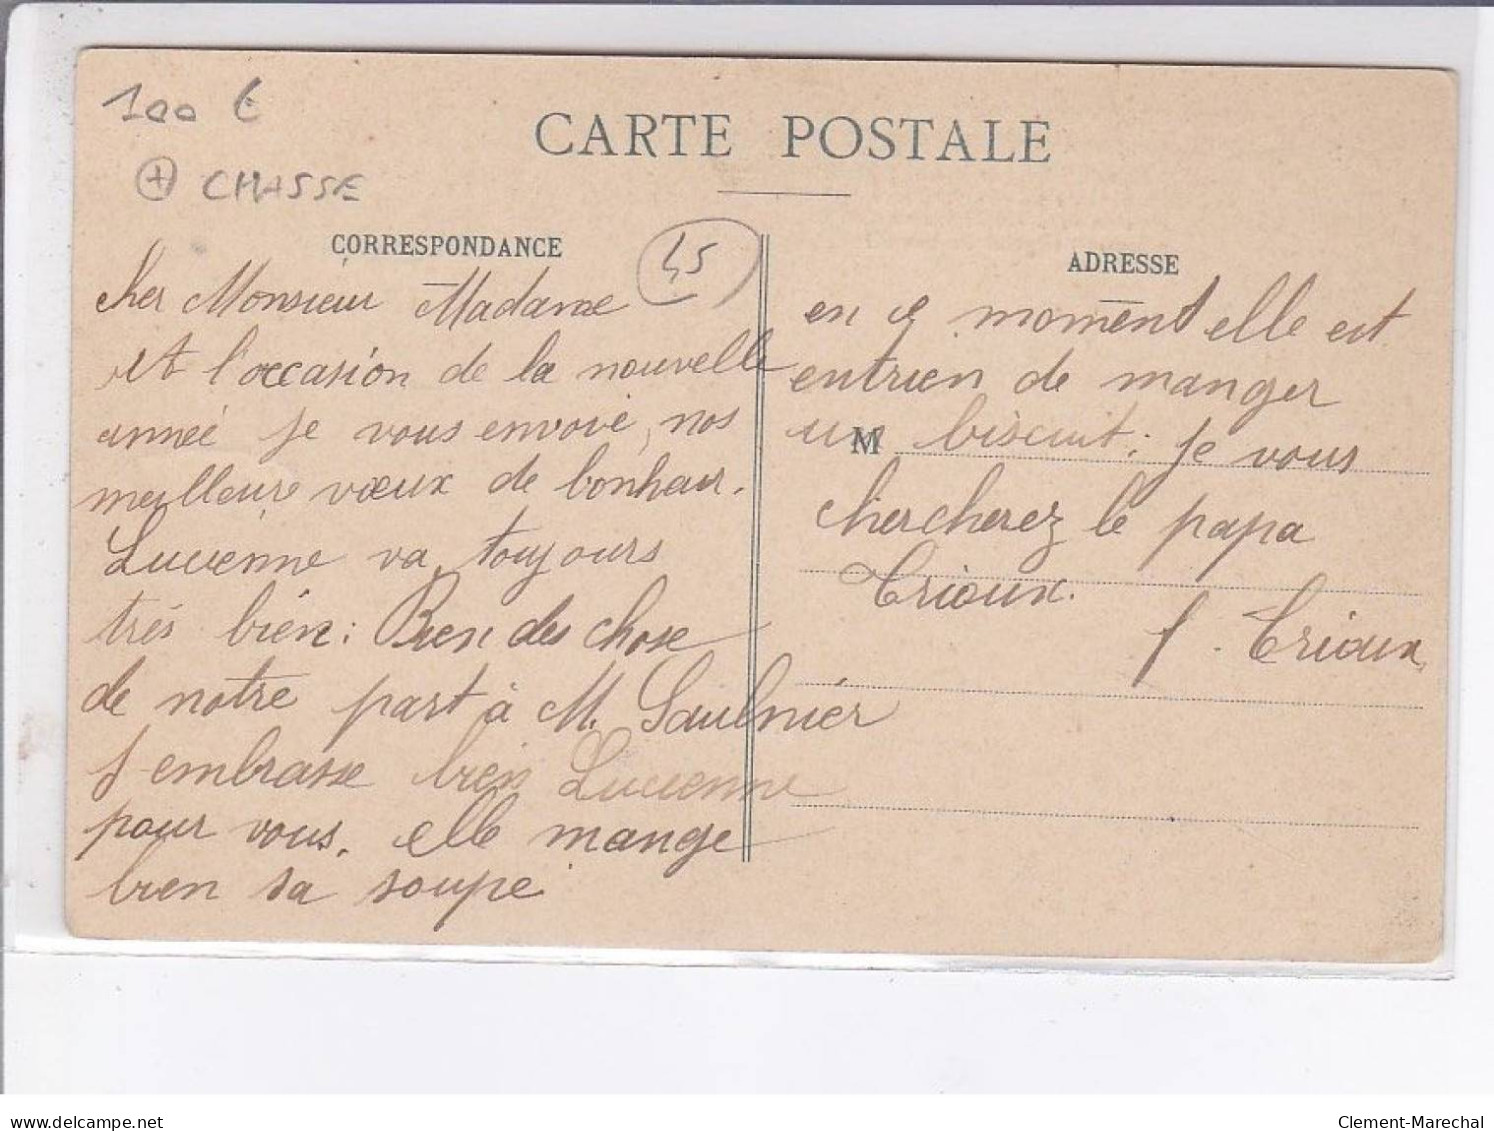 100 €
+ CHASSE
CARTE POSTALE
CORRESPONDANCE
45
ADRESSE
cher Monsieur Madame
et l'occasion de la nouvelle
année je vous envoie, nos
meilleure vœux de bonheur.
Lucienne va toujours
très bien: Bien des chose
de notre part à M. Saulnier
J embrasse bien Lucienne
pour vous. elle mange
bien sa soupe
en ce moment elle est
entrien de manger
un biscuit: je vous
M
chercherez le papa
Crioux.
f. Crioux
Clement-Marechal
www.delcampe.net